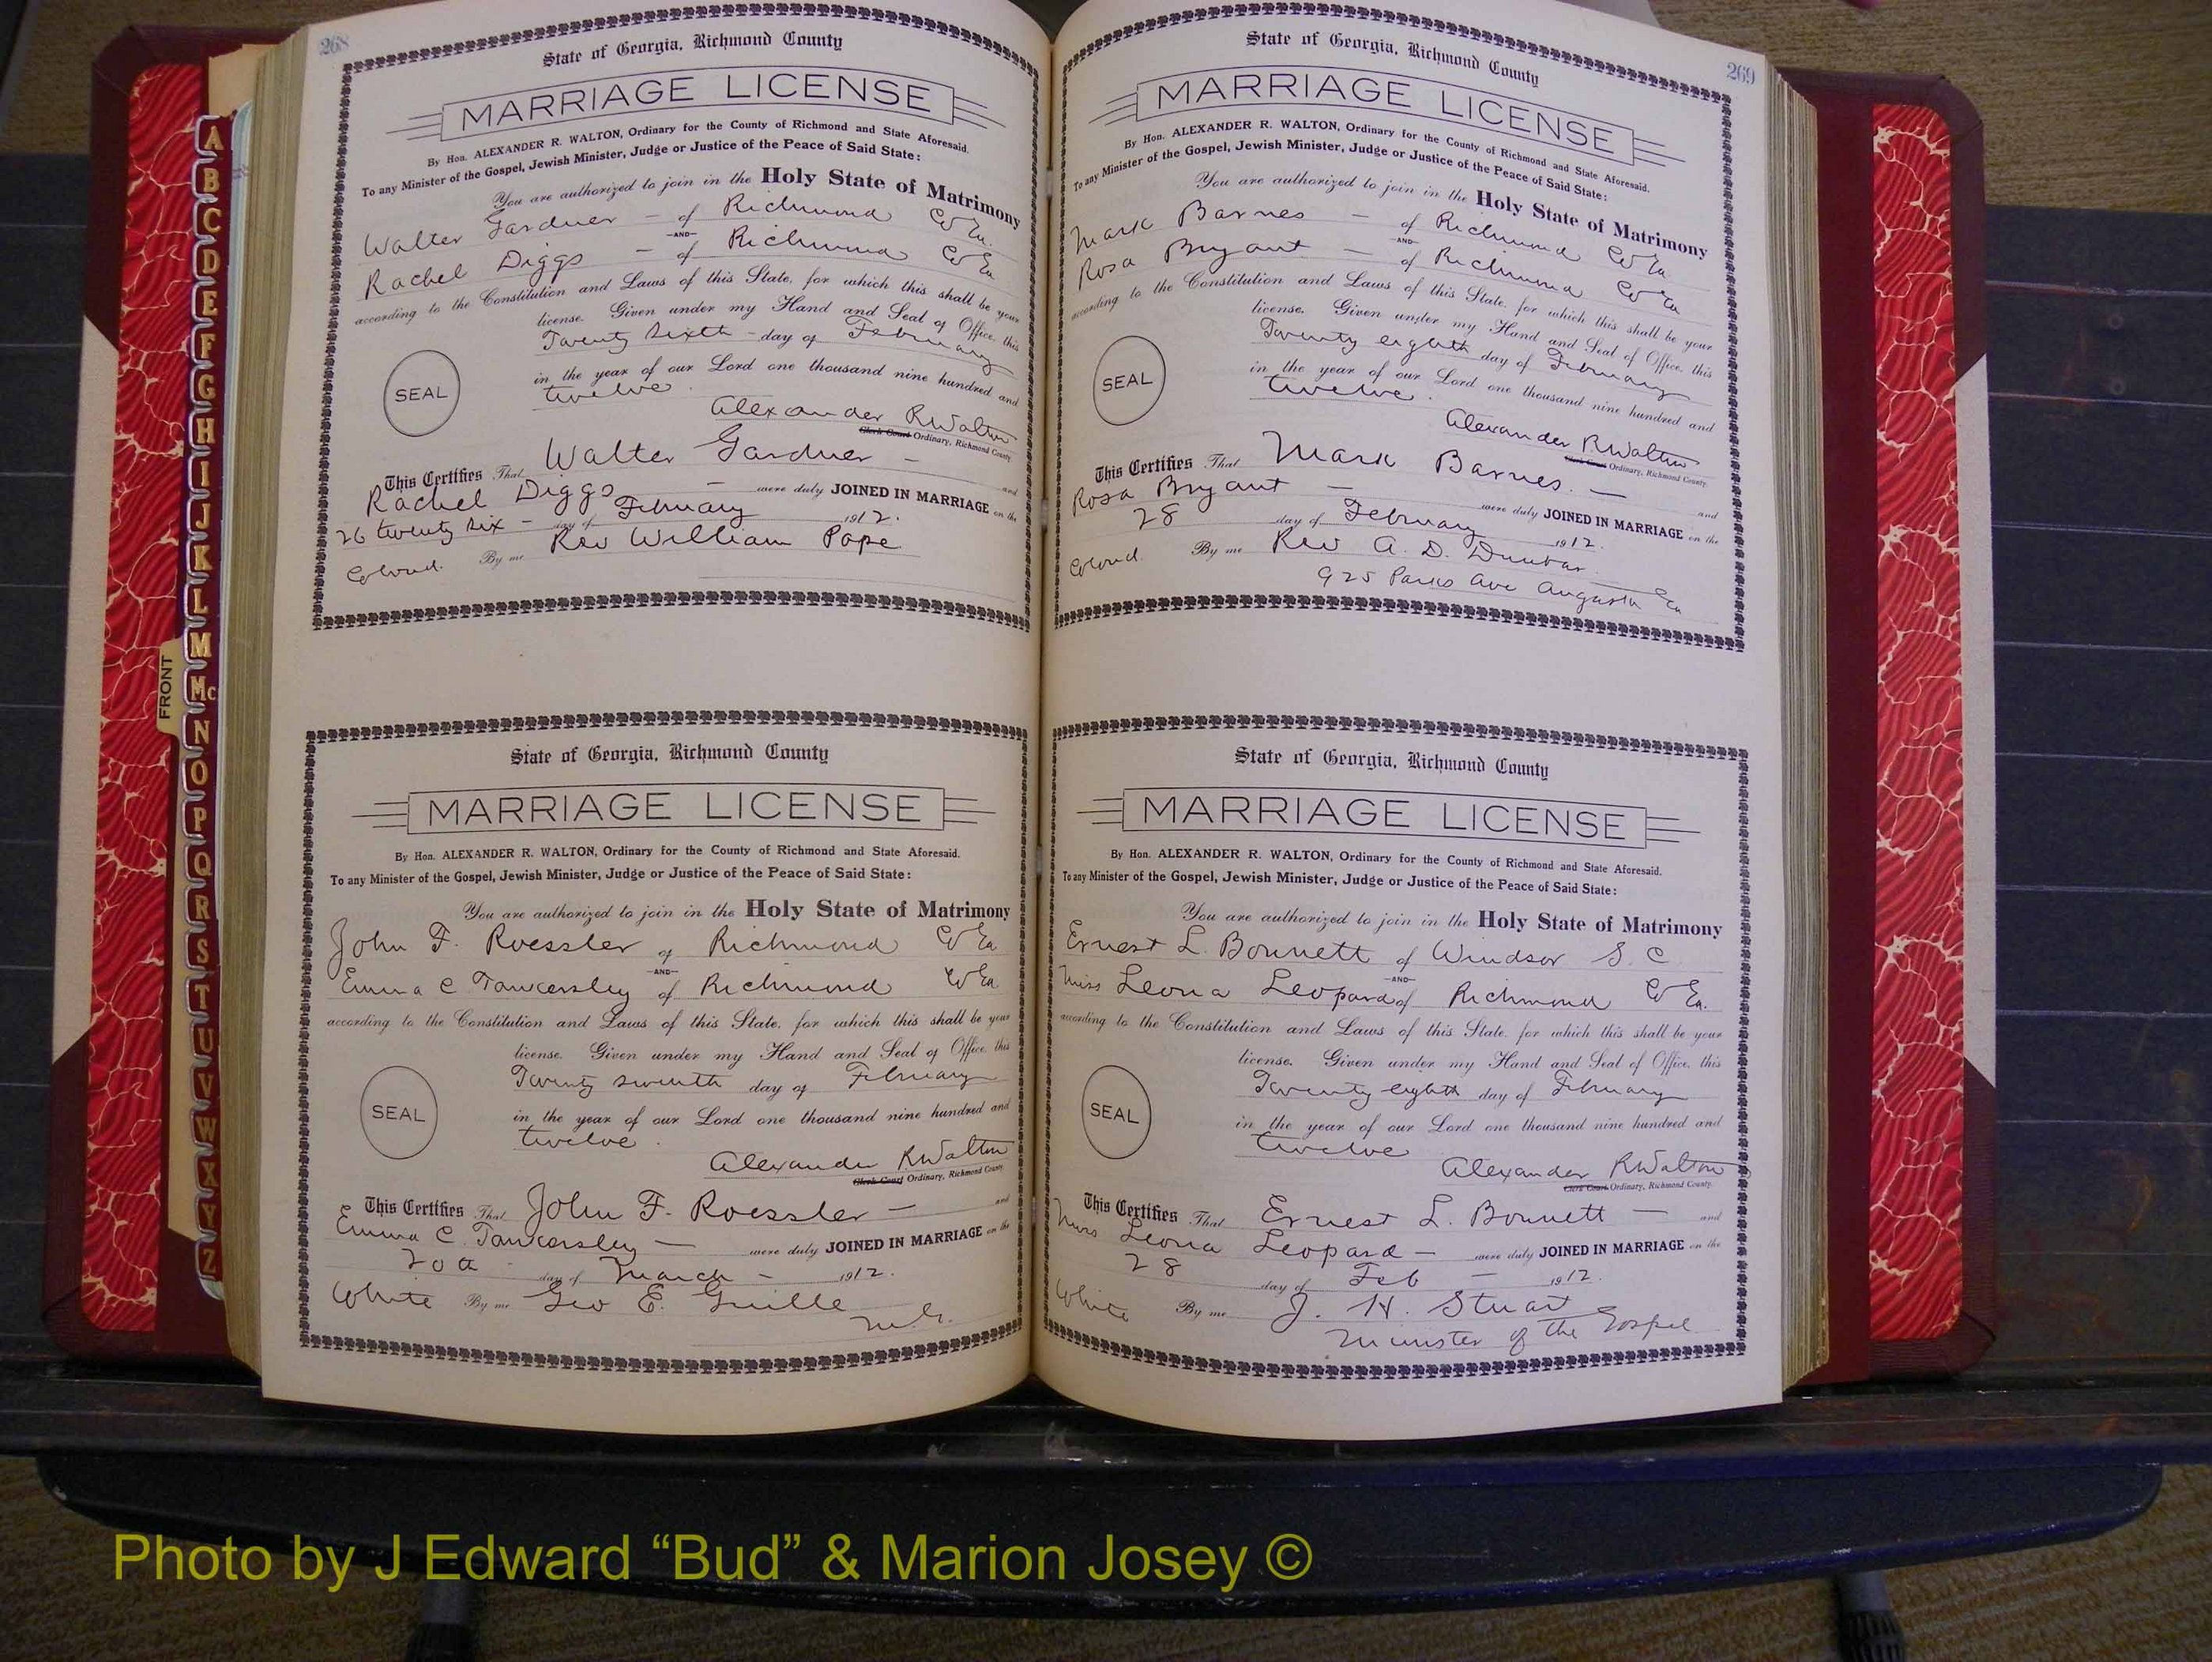 268
State of Georgia, Richmond County
MARRIAGE LICENSE
By Hon. ALEXANDER R. WALTON, Ordinary for the County of Richmond and State Aforesaid.
To any Minister of the Gospel, Jewish Minister, Judge or Justice of the Peace of Said State:
You are authorized to join in the Holy State of Matrimony
Walter Gardner - of Richmond Co Ga.
-AND-
Rachel Diggs - of Richmond Co Ga
according to the Constitution and Laws of this State, for which this shall be your
license. Given under my Hand and Seal of Office, this
Twenty sixth - day of February
in the year of our Lord one thousand nine hundred and
twelve.
SEAL
Alexander R Walton
Clerk Court Ordinary, Richmond County.
This Certifies That Walter Gardner - and
Rachel Diggs - were duly JOINED IN MARRIAGE on the
26 twenty six - day of February 1912.
Colored. By me Rev William Pope
State of Georgia, Richmond County
MARRIAGE LICENSE
By Hon. ALEXANDER R. WALTON, Ordinary for the County of Richmond and State Aforesaid.
To any Minister of the Gospel, Jewish Minister, Judge or Justice of the Peace of Said State:
You are authorized to join in the Holy State of Matrimony
John F. Roessler of Richmond Co Ga
-AND-
Emma C Tankersley of Richmond Co Ga
according to the Constitution and Laws of this State, for which this shall be your
license. Given under my Hand and Seal of Office, this
Twenty seventh day of February
in the year of our Lord one thousand nine hundred and
twelve.
SEAL
Alexander R Walton
Clerk Court Ordinary, Richmond County.
This Certifies That John F. Roessler - and
Emma C. Tankersley - were duly JOINED IN MARRIAGE on the
20th day of March - 1912.
White By me Geo E. Guille
M.G.
269
State of Georgia, Richmond County
MARRIAGE LICENSE
By Hon. ALEXANDER R. WALTON, Ordinary for the County of Richmond and State Aforesaid.
To any Minister of the Gospel, Jewish Minister, Judge or Justice of the Peace of Said State:
You are authorized to join in the Holy State of Matrimony
Mark Barnes - of Richmond Co Ga
-AND-
Rosa Bryant - of Richmond Co Ga
according to the Constitution and Laws of this State, for which this shall be your
license. Given under my Hand and Seal of Office, this
Twenty eighth day of February
in the year of our Lord one thousand nine hundred and
twelve.
SEAL
Alexander R. Walton
Clerk Court Ordinary, Richmond County.
This Certifies That Mark Barnes. - and
Rosa Bryant - were duly JOINED IN MARRIAGE on the
28 day of February 1912.
Colored. By me Rev A. D. Dunbar.
925 Parks Ave Augusta Ga
State of Georgia, Richmond County
MARRIAGE LICENSE
By Hon. ALEXANDER R. WALTON, Ordinary for the County of Richmond and State Aforesaid.
To any Minister of the Gospel, Jewish Minister, Judge or Justice of the Peace of Said State:
You are authorized to join in the Holy State of Matrimony
Ernest L. Bonnett of Windsor S. C
-AND-
Miss Leona Leopard of Richmond Co Ga.
according to the Constitution and Laws of this State, for which this shall be your
license. Given under my Hand and Seal of Office, this
Twenty eighth day of February
in the year of our Lord one thousand nine hundred and
twelve
SEAL
Alexander R Walton
Clerk Court Ordinary, Richmond County.
This Certifies That Ernest L. Bonnett - and
Miss Leona Leopard - were duly JOINED IN MARRIAGE on the
28 day of Feb - 1912.
White By me J. H. Stuart
Minister of the Gospel
FRONT
A
B
C
D
E
F
G
H
I
J
K
L
M
Mc
N
O
P
Q
R
S
T
U
V
W
X
Y
Z
Photo by J Edward “Bud” & Marion Josey ©